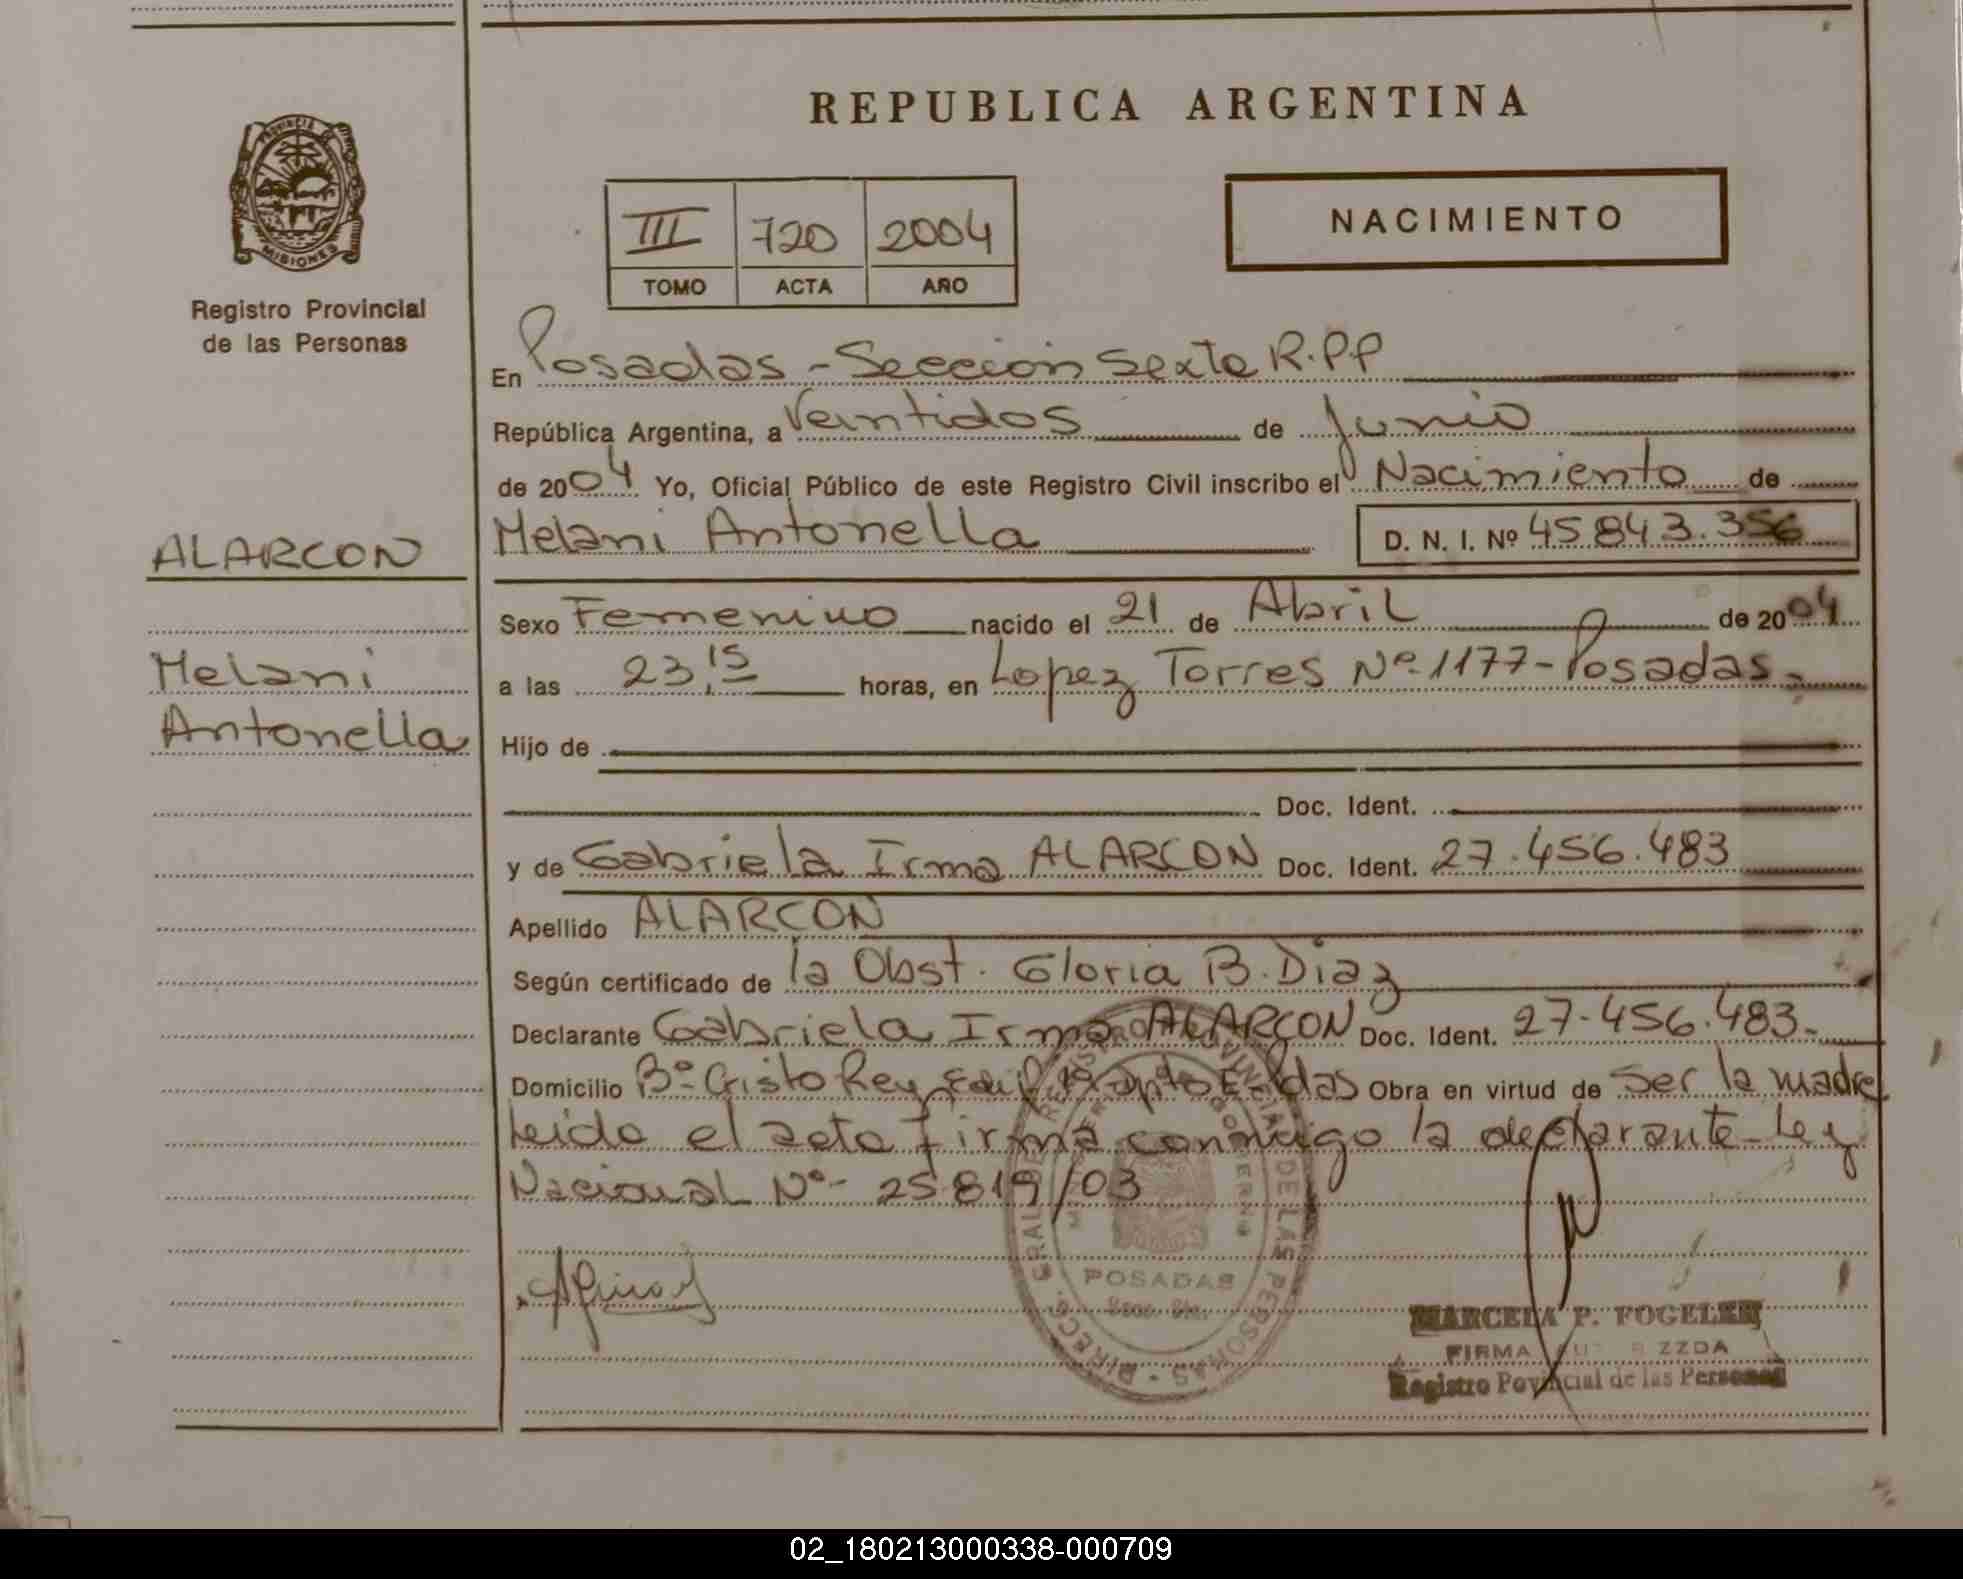 REPUBLICA ARGENTINA
PROVINCIA DE
MISIONES
Registro Provincial
de las Personas
III 720 2004
TOMO ACTA AÑO
NACIMIENTO
En Posadas - Sección Sexta R.P.P
República Argentina, a Veintidos de Junio
de 2004 Yo, Oficial Público de este Registro Civil inscribo el Nacimiento de
Melani Antonella D. N. I. Nº 45.843.356
ALARCON
Melani
Antonella
Sexo Femenino nacido el 21 de Abril de 2004
a las 23,15 horas, en Lopez Torres Nº 1177 - Posadas.
Hijo de
Doc. Ident.
y de Gabriela Irma ALARCON Doc. Ident. 27.456.483
Apellido ALARCON
Según certificado de la Obst. Gloria B. Diaz
Declarante Gabriela Irma ALARCON Doc. Ident. 27.456.483.
Domicilio Bº Cristo Rey Obra en virtud de ser la madre
Leida el acta firma conmigo la declarante - Ley
Nacional Nº - 25.819/03
POSADAS
MARCELA P. FOGELER
FIRMA
Registro Provincial de las Personas
02_180213000338-000709